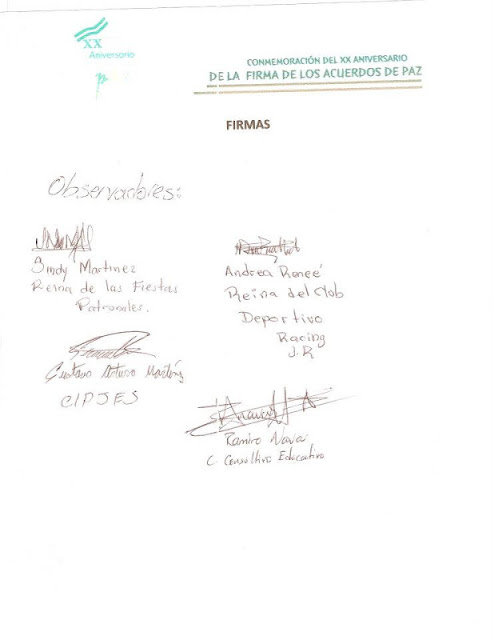 XX
Aniversario
CONMEMORACIÓN DEL XX ANIVERSARIO
DE LA FIRMA DE LOS ACUERDOS DE PAZ
FIRMAS
Observadores:
Sindy Martinez
Reina de las Fiestas
Patronales.
Andrea Reneé
Reina del Club
Deportivo
Racing
J.R
Gustavo Arturo Martínez
CIPJES
Ramiro Nava
C. Consultivo Educativo